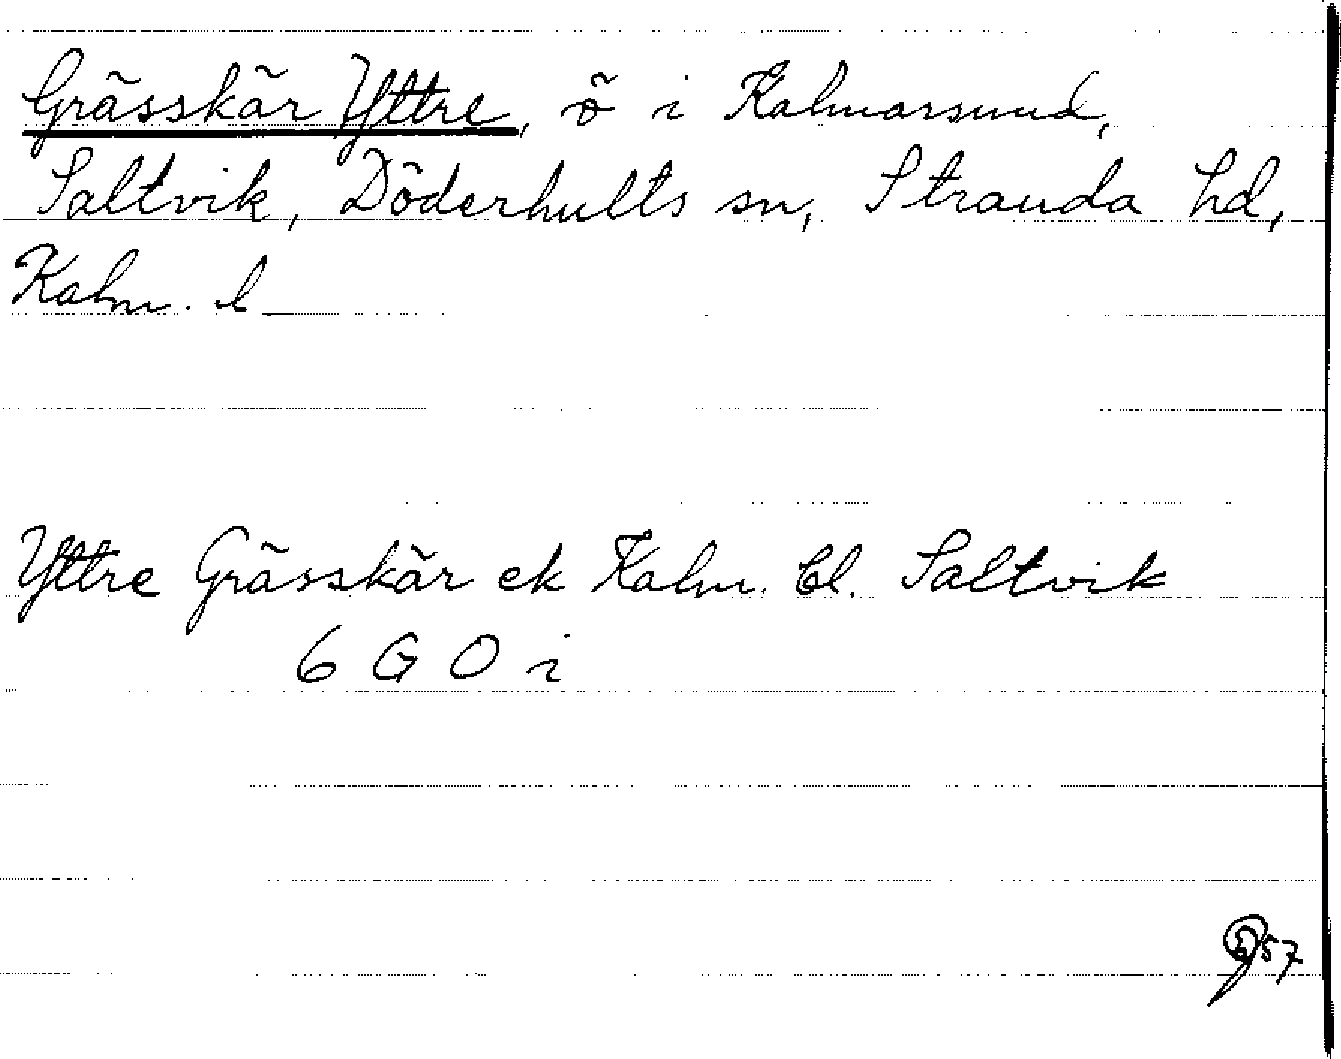 Grässkär Yttre, ö i Kalmarsund,
Saltvik, Döderhults sn, Stranda hd,
Kalm. l
Yttre Grässkär ek Kalm. bl. Saltvik
6 G 0 i
57